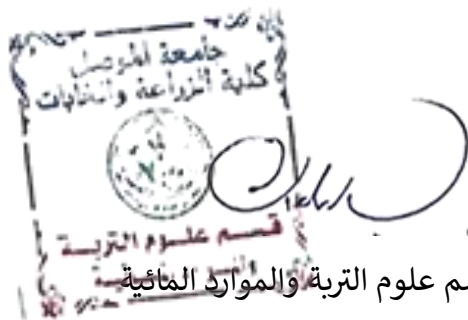 جامعة الموصل
كلية الزراعة والغابات
قسم علوم التربة
قسم علوم التربة والموارد المائية